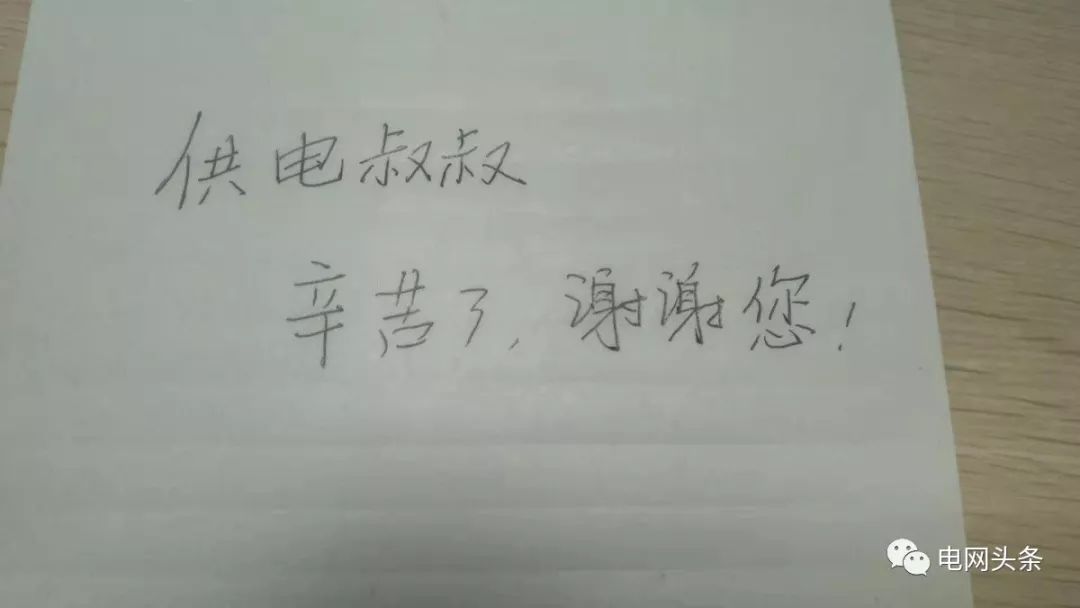 供电叔叔
辛苦了，谢谢您！
电网头条